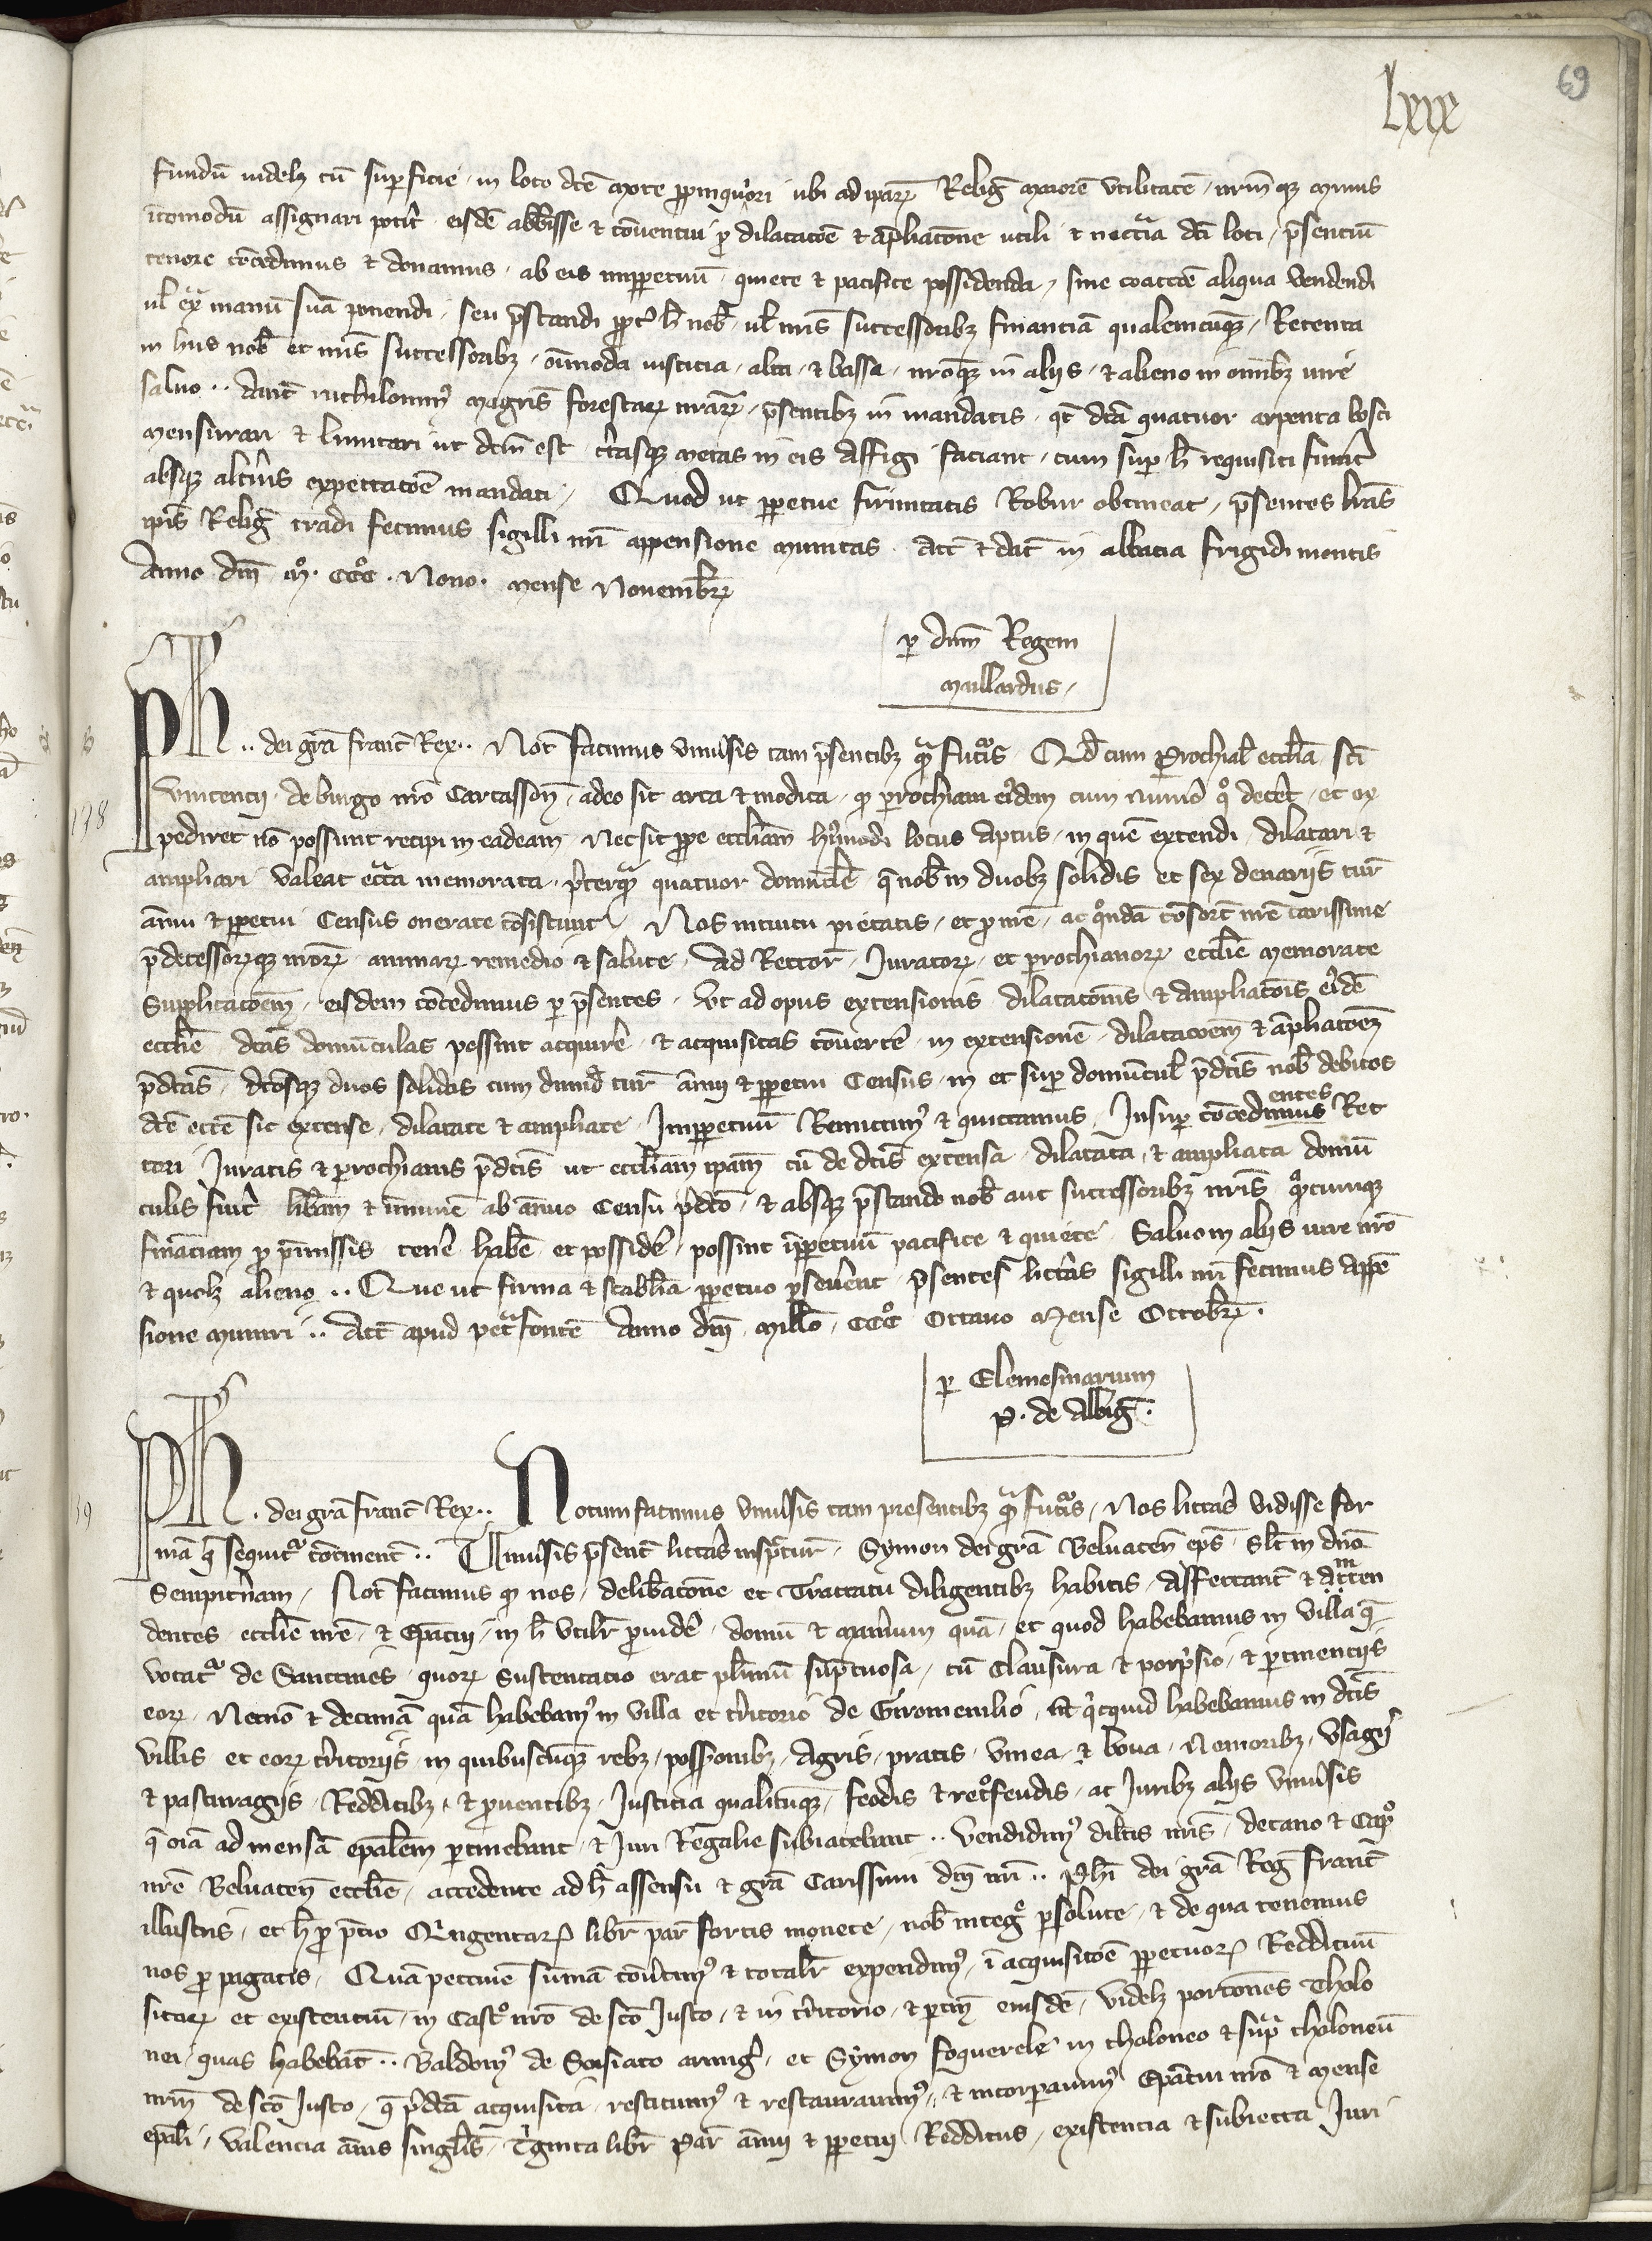 lxix
69
fundū videlꝫ cū suꝑficie, in loco dc̄e morte ꝓpinquiori ubi ad ip̄aꝝ Reliḡ maiorē utilitatē, nr̄mqꝫ minus
incōmodū assignari potit̄ eisdē abb̄isse et cōventui ꝓ dilatacōe et āpliacōne utili et necc̄ia dc̄i loci, p̄senciū
tenore cōcedimus et donamus, ab eis imꝑpetuū quiete et pacifice possidenda, sine coactōe aliqua vendendi
ul̄ ex̄ manū suā ponendi, seu p̄standi ꝓpt̄ h̄ nob̄ ul̄ nr̄is successoribꝫ financiā qualemcūqꝫ, Retenta
in hiis nob̄ et nr̄is successoribꝫ om̄imoda iusticia, alta, et bassa, nr̄oqꝫ in aliis, et alieno in om̄ibꝫ iure
salvo.. dan̄t nichilomin⁹ magr̄is forestaꝝ nr̄aꝝ, p̄sentibꝫ in mandatis, qd̄ dc̄ā quatuor arpenta bosci
mensurari et limitari ut dc̄m est, c̄tasqꝫ metas in eis affigi faciant, cum suꝑ h̄ requisiti fuin̄t
absqꝫ alt̄ius expectacōe mandati, Quod ut ꝑpetue firmitatis Robur obtineat, p̄sentes lr̄as
ip̄is Reliḡ tradi fecimus sigilli nr̄i appensione munitas. Act̄ et dat̄ in abbacia frigidi montis
Anno dn̄i m̊. CCC̊. Nono. mense Novembr̄
ꝑ dn̄m Regem
maillardus,
Ph̄.. dei gr̄a franc̄ Rex.. Not̄ facimus univ̄sis tam p̄sentibꝫ q̄ futuris. Qd̄ cum ꝑrochial̄ eccl̄ia sc̄i
178
Vincencii de burgo nr̄o Carcassoñ, adeo sit arta et modica, qꝫ ꝑrochiani eiꝰdem cum num̄o q̊ dec̄et, et ex
pediret nō possunt recipi in eadeam, Nec sit ꝓpe eccl̄iam hui⁹modi locus aptus, in quē extendi, dilatari et
ampliari valeat ecc̄ia memorata, p̄terq̄ quatuor domuncl̄e q̄ nob̄ in duobꝫ solidis et sex denariis tur̄
ānui et ꝑpetui Census onerate cōsistunt. Nos intuitu pietatis, et ꝓ nr̄e, ac q̊ndā cōsort̄ nr̄e carissime
p̄decessoꝝqꝫ nr̄oꝝ animaꝝ remedio et salute, Ad Rector̄, Juratoꝝ, et ꝑrochianoꝝ eccl̄ie memorate
Supplicacōem, eisdem cōcedimus ꝑ p̄sentes, Ut ad opus extensionis dilatacōnis et ampliacōis eiꝰdē
eccl̄ie dc̄as domūculas possint acquirē, et acquisitas cōvertē, in extensionē, dilatacōem et āpliacōem
p̄dc̄as, dc̄osqꝫ duos solidos cum dimid̄ tur̄ ānui et ꝑpetui Census, in et suꝑ domūcul̄ p̄dc̄is nob̄ debitos
dc̄e ecc̄e sic extense, dilatate et ampliate, Imꝑpetuū Remittim⁹ et quittamus, Insuꝑ cōcedimus Rec
entes
tori Juratis et ꝑrochianis p̄dc̄is ut eccl̄iam ip̄am cū de dc̄is extensa, dilatata, et ampliata domū
culis fuit̄ lib̄am et īmunē ab ānuo Censu p̄dc̄o, et absqꝫ p̄stando nob̄ aut successoribꝫ nr̄is q̄mcumqꝫ
fināciam ꝓ p̄missis tenē habē et possidē, possint īꝑpetuū pacifice et quiete Salvo in aliis iure nr̄o
et quolꝫ alieno.. Que ut firma et stabil̄ia ꝑpetuo ꝑsev̄ent p̄sentes litt̄as sigilli nr̄i fecimus appē
sione muniri.. Act̄ apud pet̄fontē Anno dn̄i mill̄o CCC̊ Octavo mense Octobr̄.
ꝑ Elemosinarium
P. de Albiḡ.
Ph̄. dei gr̄a franc̄ Rex.. Notum facimus univ̄sis tam presentibꝫ q̄ futuris, Nos litt̄as vidisse for
mā q̄ sequit̄ cōtinent̄.. Univ̄sis p̄sent̄ litt̄as insp̄ctur̄, Symon dei gr̄a Belvaceñ ep̄s, Sl̄t in dn̄o
Sempit̄nam, Not̄ facimus qꝫ nos, delib̄acōne et Tractatu diligentibꝫ habitis, affectant̄ et atten
m
dentes eccl̄ie nr̄e, et Ep̄atui, in h̄ utilit̄ ꝓvidē, domū et man̄ium quā, et quod habebamus in villa q̄
vocat̄ de Sanctines, quoꝝ sustentacio erat pl̄imū sūptuosa, cū Clausura et porpisio, et ꝑtinenciis
eoꝝ, Necnō et decimā quā habebam⁹ in villa et t̄ritorio de Giromenilio, et q̄cquid habebamus in dc̄is
villis et eoꝝ t̄ritoriis, in quibuscūqꝫ rebꝫ, possionibꝫ, Agris, pratis, Vinea, et bova, Nemoribꝫ, Usaḡ
et pasturagiis, Redditibꝫ, et ꝓventibꝫ, Justicia qualicūqꝫ, feodis et ret̊feudis, ac Juribꝫ aliis univ̄sis
q̄ oīa ad mensā ep̄alem ꝑtinebant, et Juri Regalie subiacebant.. Vendidim⁹ dil̄tis nr̄is, decano et Capl̊o
nr̄e Belvaceñ eccl̄ie, accedente ad h̄ assensu et gr̄a Carissimi dn̄i nr̄i.. Ph̄i dei gr̄a Reḡ franc̄
illustris, et h̄ ꝓ p̄cio Qūgentaꝝ libr̄ par̄ fortis monete, nob̄ integ̊ ꝑsolute, et de qua tenemus
nos ꝓ pagatis, Quā peccunie sūmā cōv̄tim⁹ et totalit̄ expendim⁹, ī acquisicōe ꝑpetuoꝝ Reddituū
sitoꝝ et existenciū, in Cast̊ nr̄o de sc̄o Justo, et in t̄ritorio, et ꝑtiñ eiusdē, videlꝫ porcōnes Tholo
nei, quas habebāt.. Baldoin⁹ de Soisiaco armiḡ, et Symon foquerele in tholoneo et sup̄ tholoneū
nr̄m de sc̄o Justo, q̄ p̄dc̄ā acquisita, restituim⁹ et restauravim⁹, et incorporavim⁹ Ep̄atui nr̄o et mense
ep̄ali, valencia ānis singl̄is, T̄ginta libr̄ par̄ ānui et ꝑpetui Redditus, existencia et subiecta Juri